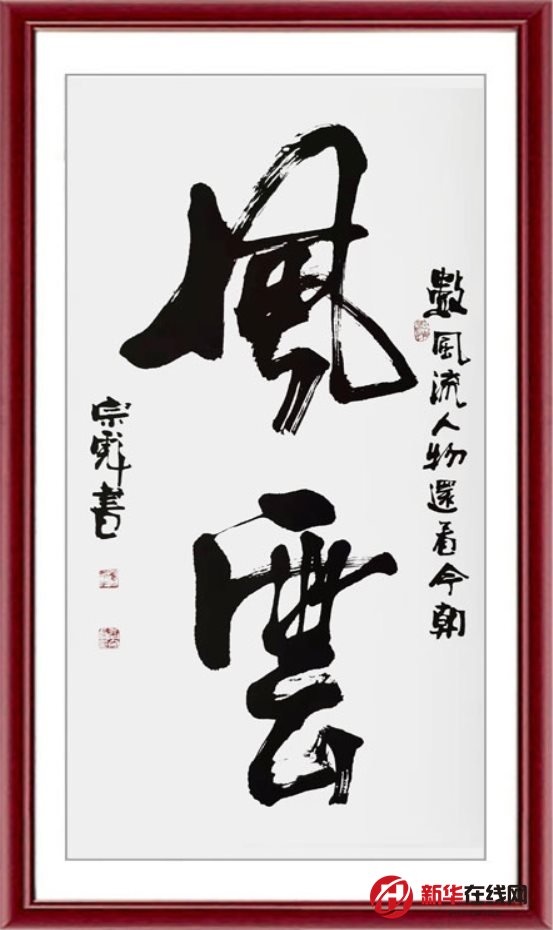 數風流人物還看今朝
風雲
宗 書
新华在线网